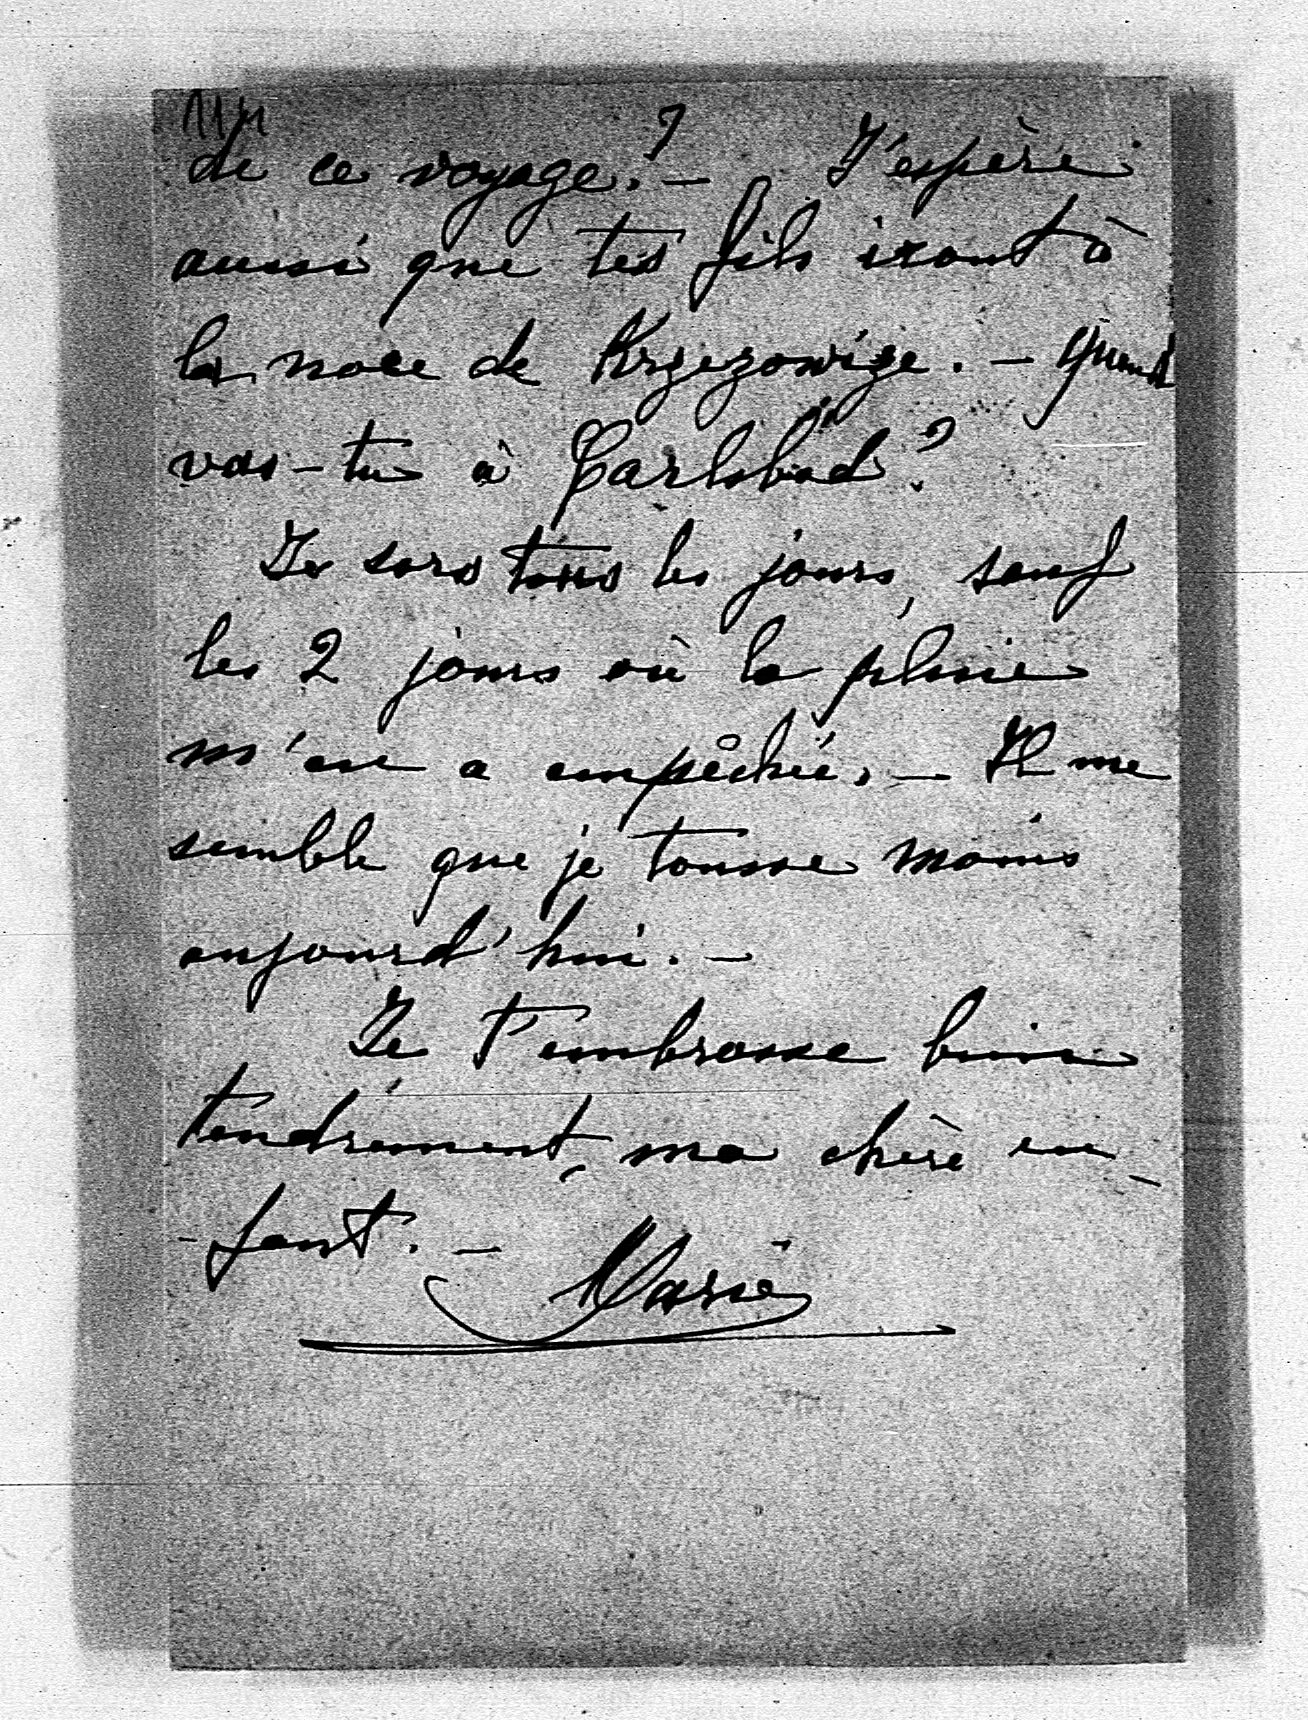 de ce voyage? — J'espère
aussi que tes fils iront à
la noce de Krzezowize. — Quand
vas-tu à Carlsbad?
Je sors tous les jours, sauf
les 2 jours où la pluie
m'en a empêchée. — Il me
semble que je tousse moins
aujourd'hui. —
Je t'embrasse bien
tendrement, ma chère en-
-fant. —
Marie